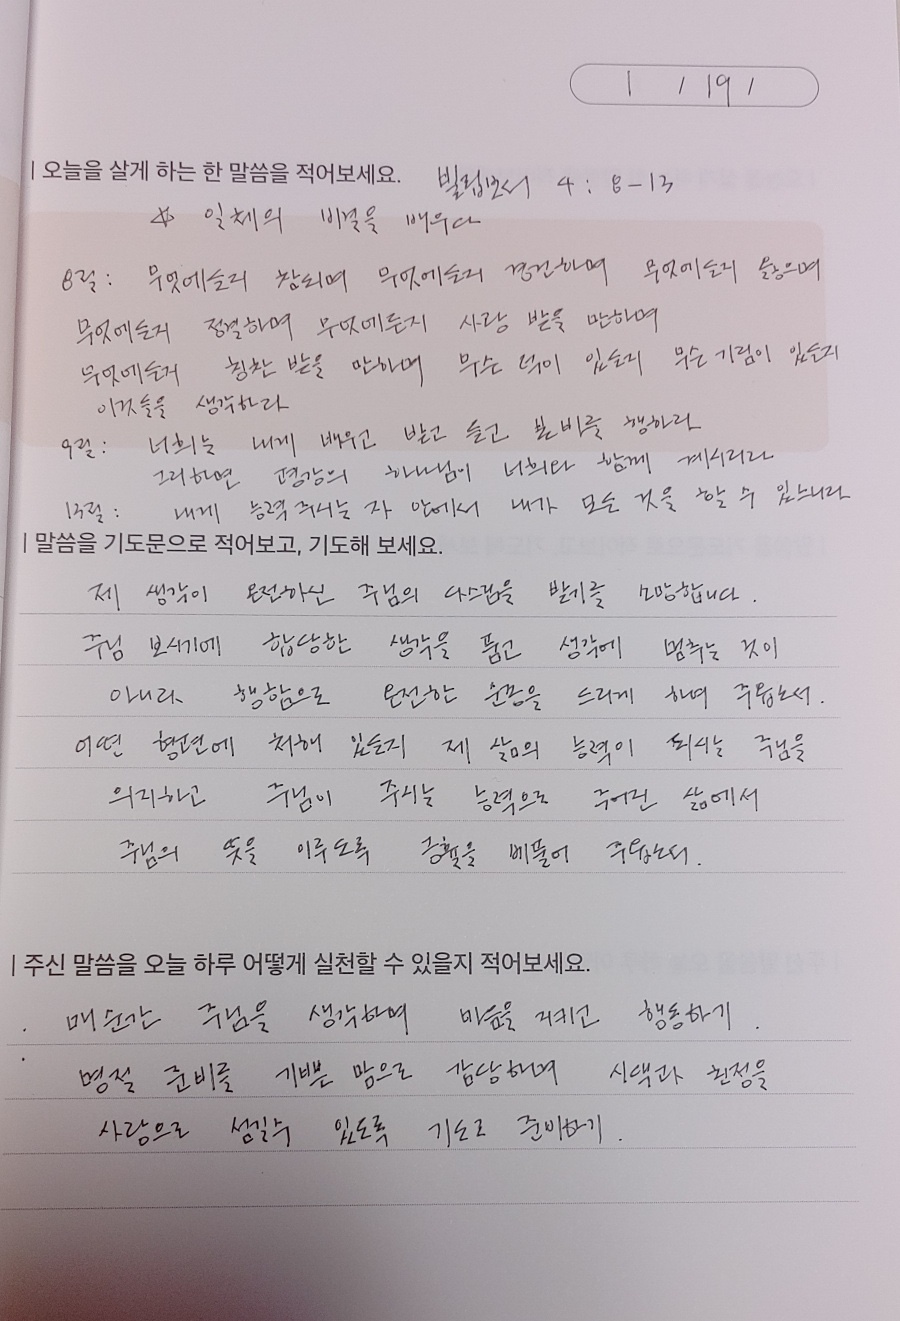 1 / 19 /
| 오늘을 살게 하는 한 말씀을 적어보세요. 빌립보서 4 : 8-13
☆ 일체의 비결을 배우다
8절 : 무엇에든지 참되며 무엇에든지 경건하며 무엇에든지 옳으며
무엇에든지 정결하며 무엇에든지 사랑 받을 만하며
무엇에든지 칭찬 받을 만하며 무슨 덕이 있든지 무슨 기림이 있든지
이것들을 생각하라
9절 : 너희는 내게 배우고 받고 듣고 본 바를 행하라
그리하면 평강의 하나님이 너희와 함께 계시리라
13절 : 내게 능력 주시는 자 안에서 내가 모든 것을 할 수 있느니라
| 말씀을 기도문으로 적어보고, 기도해 보세요.
제 생각이 온전하신 주님의 다스림을 받기를 소망합니다.
주님 보시기에 합당한 생각을 품고 생각에 멈추는 것이
아니라 행함으로 온전한 순종을 드리게 하여 주옵소서.
어떤 형편에 처해 있든지 제 삶의 능력이 되시는 주님을
의지하고 주님이 주시는 능력으로 주어진 삶에서
주님의 뜻을 이루도록 긍휼을 베풀어 주옵소서.
| 주신 말씀을 오늘 하루 어떻게 실천할 수 있을지 적어보세요.
. 매 순간 주님을 생각하며 마음을 지키고 행동하기.
. 명절 준비를 기쁜 맘으로 감당하며 시댁과 친정을
사랑으로 섬길수 있도록 기도로 준비하기.